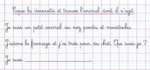 Copie la devinette et trouve l'animal dont il s'agit.
Je suis un petit animal au nez pointu et moustachu.
J'adore le fromage et j'ai très peur du chat. Qui suis-je ?
Je suis